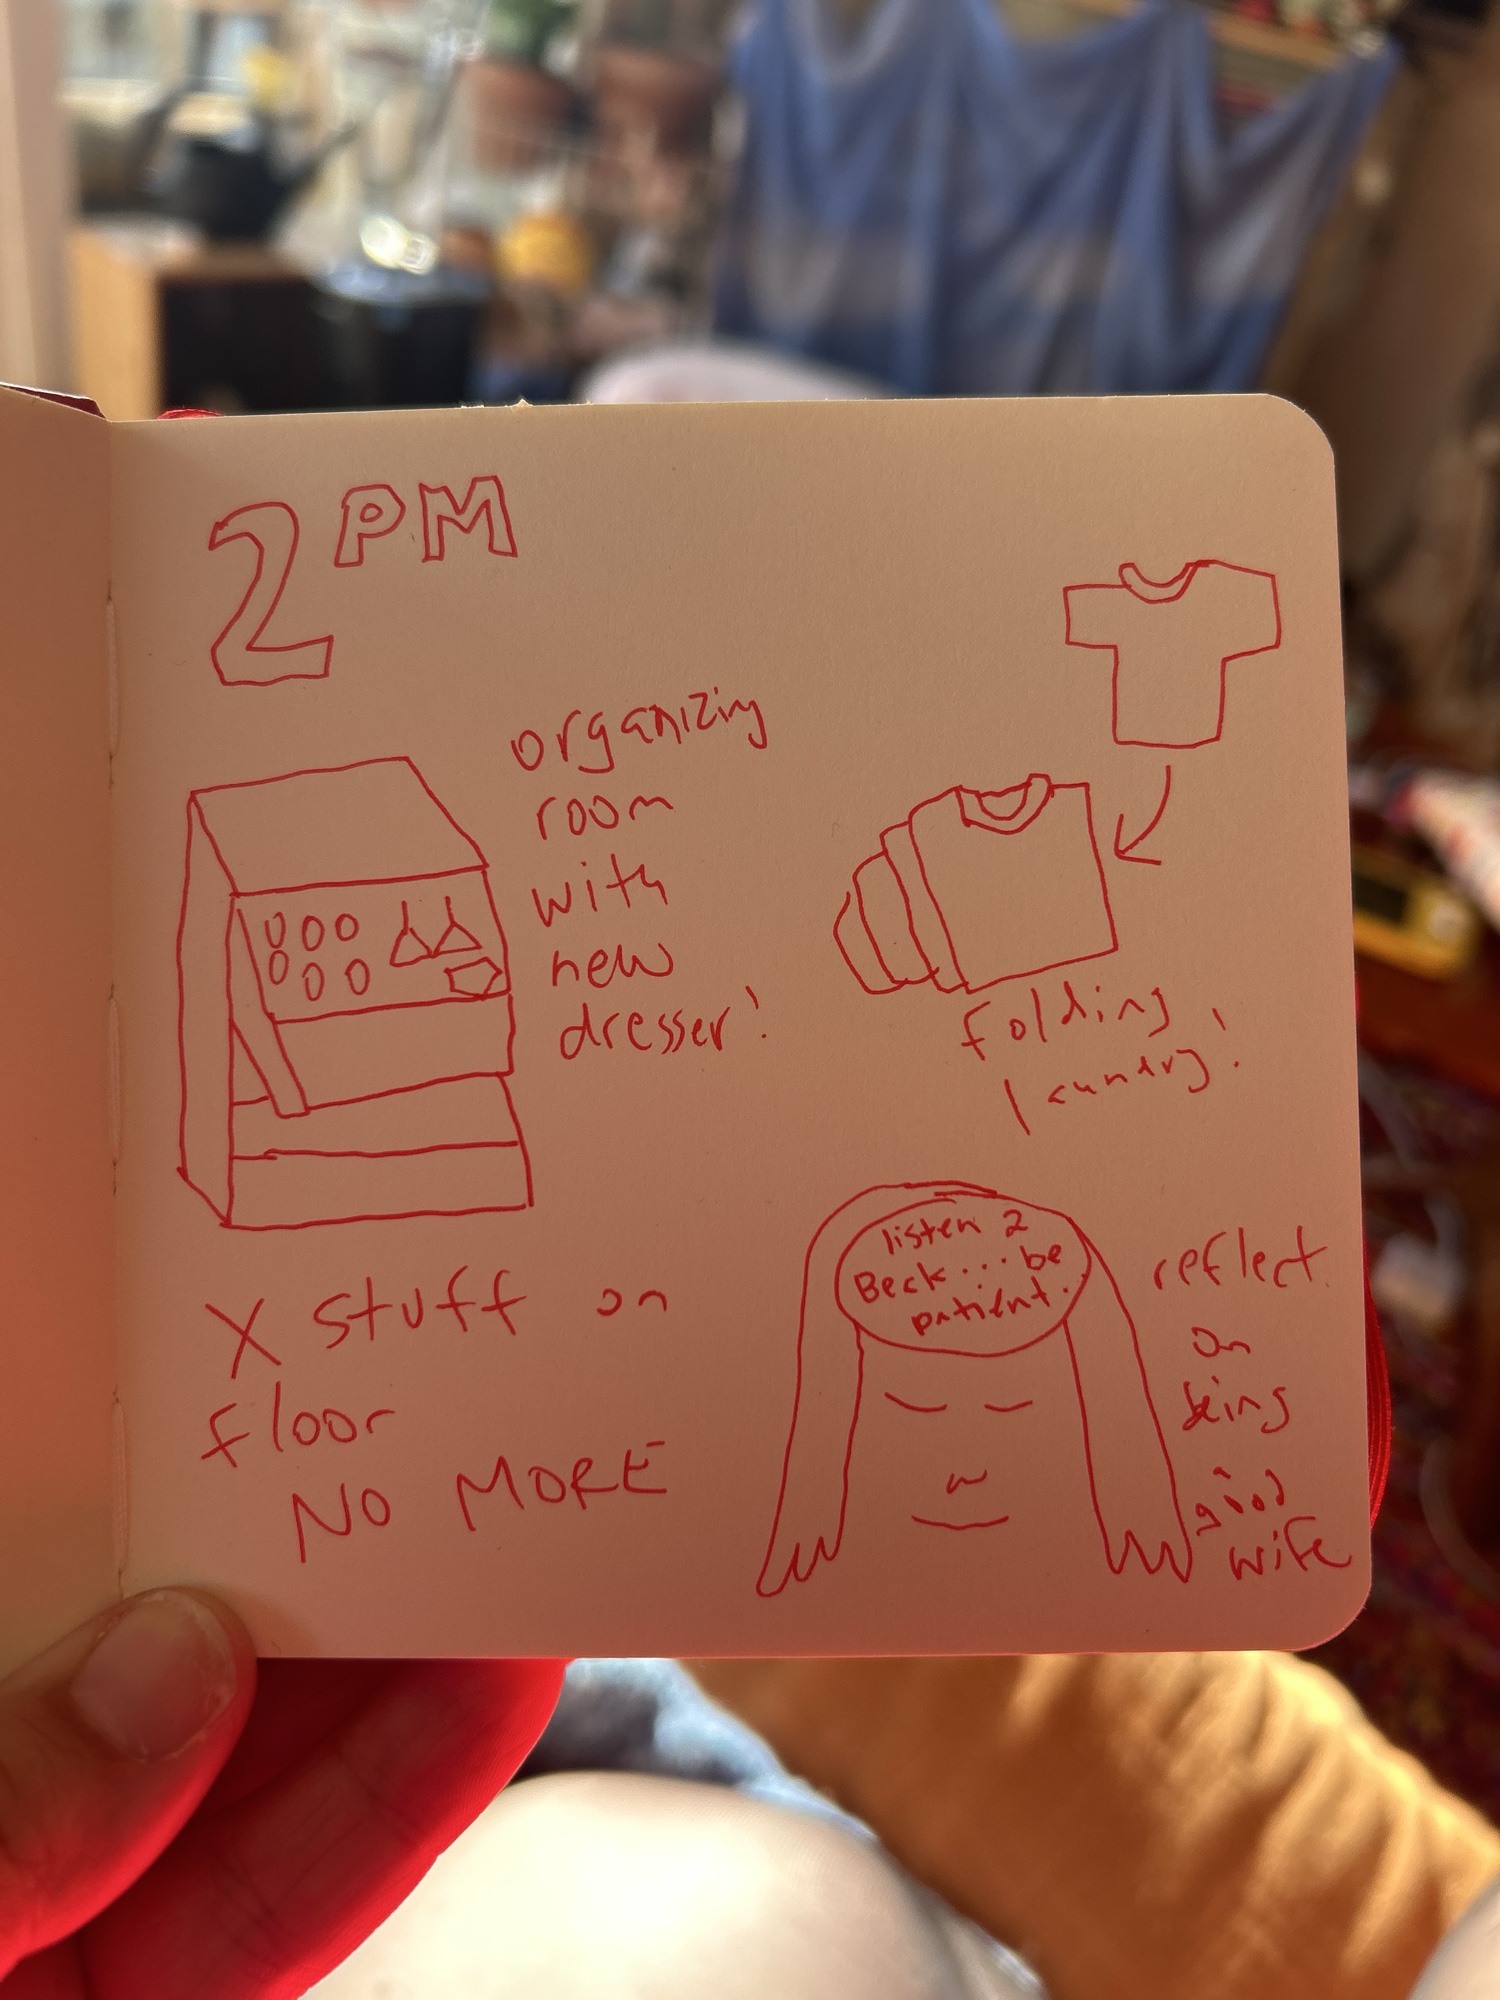 2 PM
organizing
room
with
new
dresser!
folding
laundry!
X stuff on
floor
NO MORE
listen 2
Beck... be
patient.
reflect
on
being
good
wife